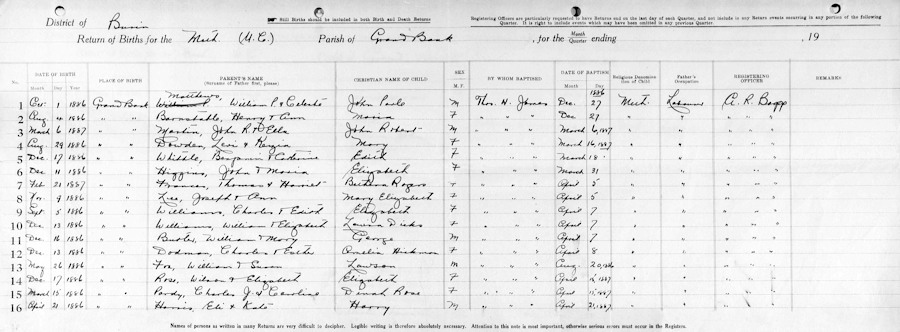 ☞ Still Births should be included in both Birth and Death Returns
Registering Officers are particularly requested to have Returns end on the last day of each Quarter, and not include in any Return events occurring in any portion of the following Quarter. It is right to include events which may have been omitted in any previous quarter.
District of Burin
Return of Births for the Meth. (M.C.) Parish of Grand Bank, for the Month Quarter ending , 19
No. DATE OF BIRTH Month Day Year PLACE OF BIRTH PARENT'S NAME (Surname of Father first, please) CHRISTIAN NAME OF CHILD SEX M. F. BY WHOM BAPTISED DATE OF BAPTISM Month Day Religious Denomination of Child Father's Occupation REGISTERING OFFICER REMARKS
Matthews 1886
1 Oct 1 1886 Grand Bank William P & Celeste John M Thos. H. James Dec. 27 Meth. Labourer A. R.
2 Aug 4 1886 " " Barnstable, Henry & Ann Maria F " " " Dec 27 " " "
3 March 6 1887 " " Martin, John R & Ella John Robert M " " " March 6, 1887 " " "
4 Aug 29 1886 " " Dowden, Levi & Keziah Mary F " " " March 16, 1887 " " "
5 Dec. 17 1886 " " Whittle, Benjamin & Catherine Edith F " " " March 18 " " "
6 Dec 11 1886 " " Higgins, John & Maria Elizabeth F " " " March 31 " " "
7 Feb 21 1887 " " Frances, Thomas & Harriet Rogers " " " April 5 " " "
8 Nov 9 1886 " " Joseph & Ann Mary Elizabeth F " " " April 5 " " "
9 Sept 5 1886 " " Williams, Charles & Edith Elizabeth F " " " April 7 " " "
10 Dec 13 1886 " " Williams, William & Elizabeth Laura Dicks F " " " April 7 " " "
11 Dec 16 1886 " " Butler, William & Mary George M " " " April 7 " " "
12 Dec 13 1886 " " Dodman, Charles & Esther Amelia Hickman F " " " April 8 " " "
13 May 26 1886 " " Fox, William & Susan Lawson M " " " Aug 20, 1886 " " "
14 Dec 17 1886 " " Rose, Wilson & Elizabeth Elizabeth F " " " April 1887 " " "
15 March 15 1886 " " Pardy, Charles J. & Caroline Dinah Rose F " " " April 1887 " " "
16 April 21 1886 " " Harris, Eli & Kate Harry M " " " April 21, 1887 " " "
Names of persons as written in many Returns are very difficult to decipher. Legible writing is therefore absolutely necessary. Attention to this note is most important, otherwise serious errors must occur in the Registers.